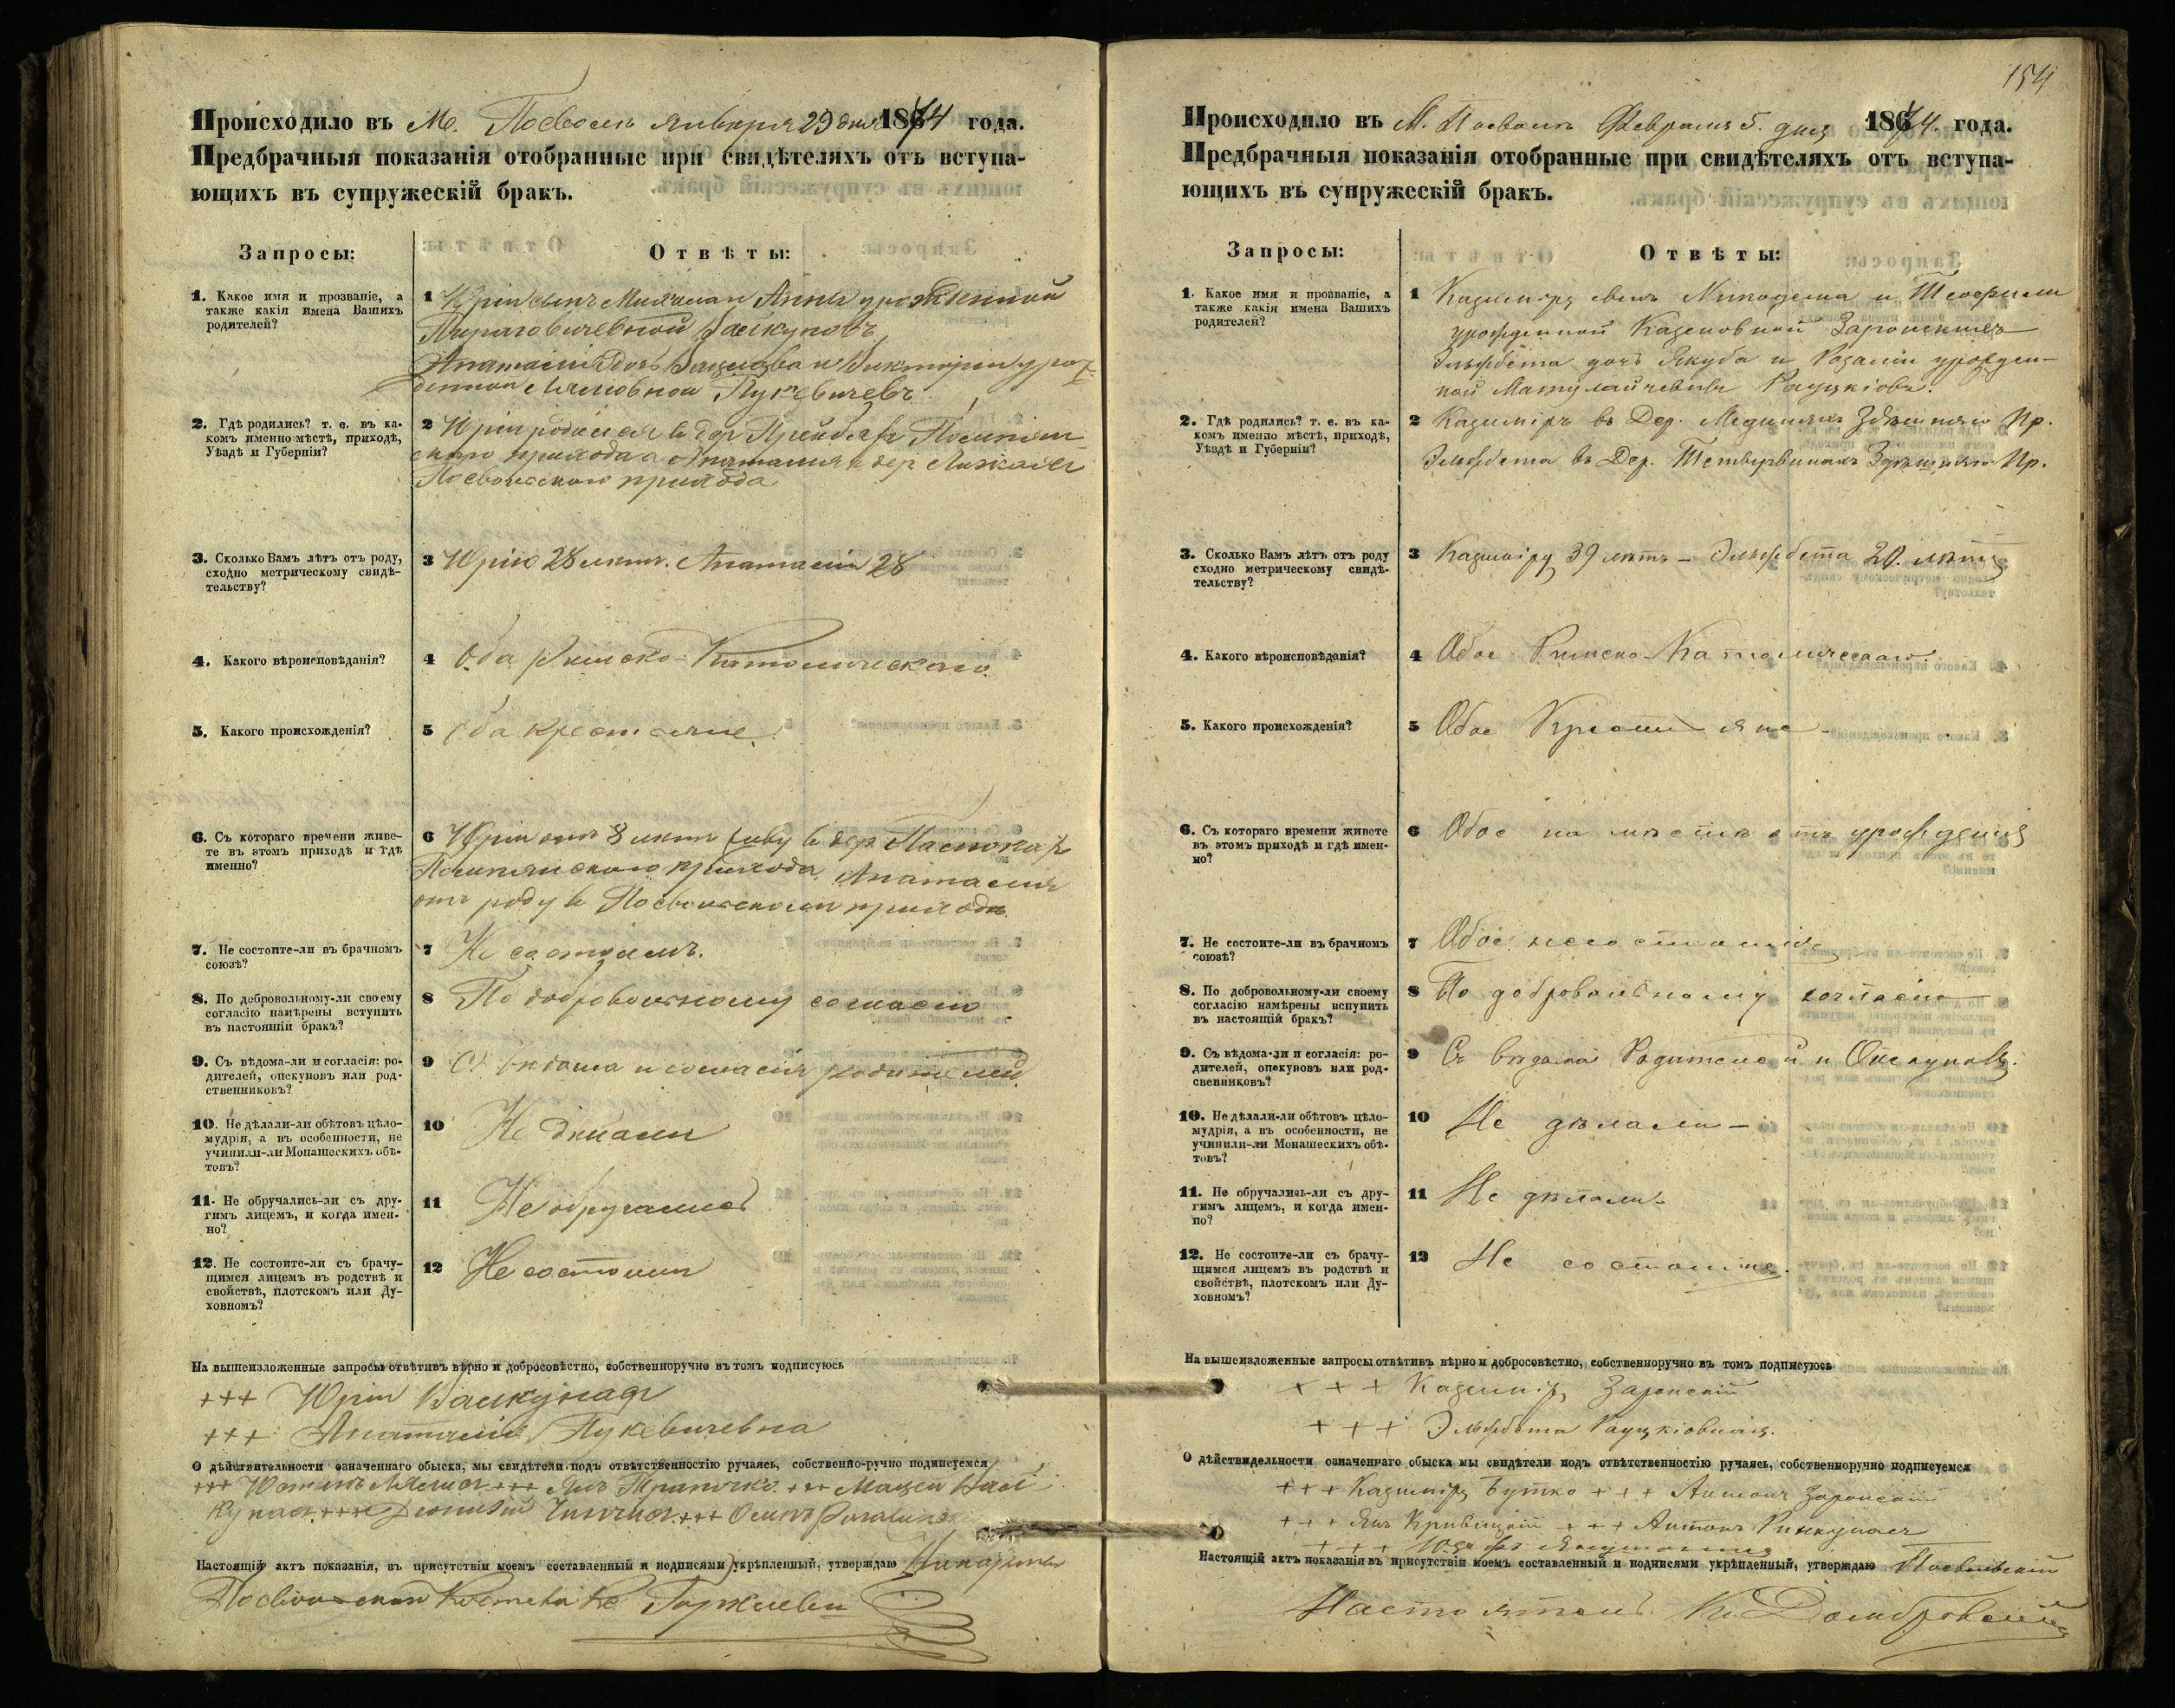 Происходило въ М. Посволь января 29 дня 1874 года.
Предбрачныя показанія отобранные при свидѣтеляхъ отъ вступа-
ющихъ въ супружескій бракъ.
Запросы:
Отвѣты:
1. Какое имя и прозваніе, а
также какія имена Вашихъ
родителей?
1 Юрій сынъ Михаила и Анны урожденной
Анатасія дочь и Викторіи урож-
денной Пукевичевъ
2. Гдѣ родились? т. е. въ ка-
комъ именно мѣстѣ, приходѣ,
Уѣздѣ и Губерніи?
2 Юрій родился в дер.
прихода а Анатасія в дер.
Посвольскаго прихода
3. Сколько Вамъ лѣтъ отъ роду,
сходно метрическому свидѣ-
тельству?
3 Юрію 28 лѣтъ. Анатасіи 28
4. Какого вѣроисповѣданія?
4 Оба Римско-Католическаго.
5. Какого происхожденія?
5 Оба крестьяне.
6. Съ котораго времени живе-
те въ этомъ приходѣ и гдѣ
именно?
6 Юрій отъ 8 лѣтъ живу в дер.
прихода Анатасія
отъ роду в Посвольскомъ приходѣ.
7. Не состоите-ли въ брачномъ
союзѣ?
7 Не состоимъ.
8. По добровольному-ли своему
согласію намѣрены вступить
въ настоящій бракъ?
8 По добровольному согласію
9. Съ вѣдома-ли и согласія: ро-
дителей, опекуновъ или род-
ственниковъ?
9 Съ вѣдома и согласія родителей
10. Не дѣлали-ли обѣтовъ цѣло-
мудрія, а въ особенности, не
учинили-ли Монашескихъ обѣ-
товъ?
10 Не дѣлали
11. Не обручались-ли съ дру-
гимъ лицемъ, и когда имен-
но?
11 Не обручались
12. Не состоите-ли съ брачу-
щимся лицемъ въ родствѣ и
свойствѣ, плотскомъ или Ду-
ховномъ?
12 Не состоимъ
На вышеизложенные запросы отвѣтивъ вѣрно и добросовѣстно, собственноручно въ томъ подписуюсь
+++ Юрій
+++ Анатасія Пукевичевна
О дѣйствительности означеннаго обыска, мы свидѣтели подъ отвѣтственностію ручаясь, собственно-ручно подписуемся
+++ +++ Янъ +++ Мацей
+++ +++ Осипъ
Настоящій актъ показанія, въ присутствіи моемъ составленный и подписями укрѣпленный, утверждаю
Посвольскаго Костела Кс.
154
Происходило въ М. Посволь Февраля 5. дня 1874. года.
Предбрачныя показанія отобранные при свидѣтеляхъ отъ вступа-
ющихъ въ супружескій бракъ.
Запросы:
Отвѣты:
1. Какое имя и прозваніе, а
также какія имена Вашихъ
родителей?
1 Казиміръ сынъ Никодема и Теофили
урожденной
Эльжбета дочь Якуба и Розаліи урожден-
ной
2. Гдѣ родились? т. е. въ ка-
комъ именно мѣстѣ, приходѣ,
Уѣздѣ и Губерніи?
2 Казиміръ въ Дер. Здѣшняго Пр.
Эльжбета въ Дер. Здѣшняго Пр.
3. Сколько Вамъ лѣтъ отъ роду
сходно метрическому свидѣ-
тельству?
3 Казиміру 39 лѣтъ – Эльжбета 20. лѣтъ
4. Какого вѣроисповѣданія?
4 Обое Римско-Католическаго.
5. Какого происхожденія?
5 Обое Крестьяне –
6. Съ котораго времени живете
въ этомъ приходѣ и гдѣ имен-
но?
6 Обое на мѣстѣ отъ урожденія
7. Не состоите-ли въ брачномъ
союзѣ?
7 Обое несостоимъ
8. По добровольному-ли своему
согласію намѣрены вспунить
въ настоящій бракъ?
8 По добровольному согласію –
9. Съ вѣдома-ли и согласія: ро-
дителей, опекуновъ или род-
свенниковъ?
9 Съ вѣдома Родителей и Опекуновъ.
10. Не дѣлали-ли обѣтовъ цѣло-
мудрія, а въ особенности, не
учинили-ли Монашескихъ обѣ-
товъ?
10 Не дѣлали –
11. Не обручались-ли съ дру-
гимъ лицемъ, и когда имен-
но?
11 Не дѣлали.
12. Не состоите-ли съ брачу-
щимся лицемъ въ родствѣ и
свойствѣ, плотскомъ или Ду-
ховномъ?
12 Не состоимъ.
На вышеизложенные запросы отвѣтивъ вѣрно и добросовѣстно, собственноручно въ томъ подписуюсь
+ + + Казиміръ Заронскій
+ + + Эльжбета
О дѣйствидельности означеннаго обыска мы свидѣтели подъ отвѣтственностію ручаясь, собственноручно подписуемся
+ + + Казиміръ Бутко + + + Антонъ Заронскій
+ + + Янъ Кривицкій + + + Антонъ
+ + +
Настоящій актъ показанія въ присутствіи моемъ составленный и подписями укрѣпленный, утверждаю Посвольскій
Настоятель Кс. Домбровскій